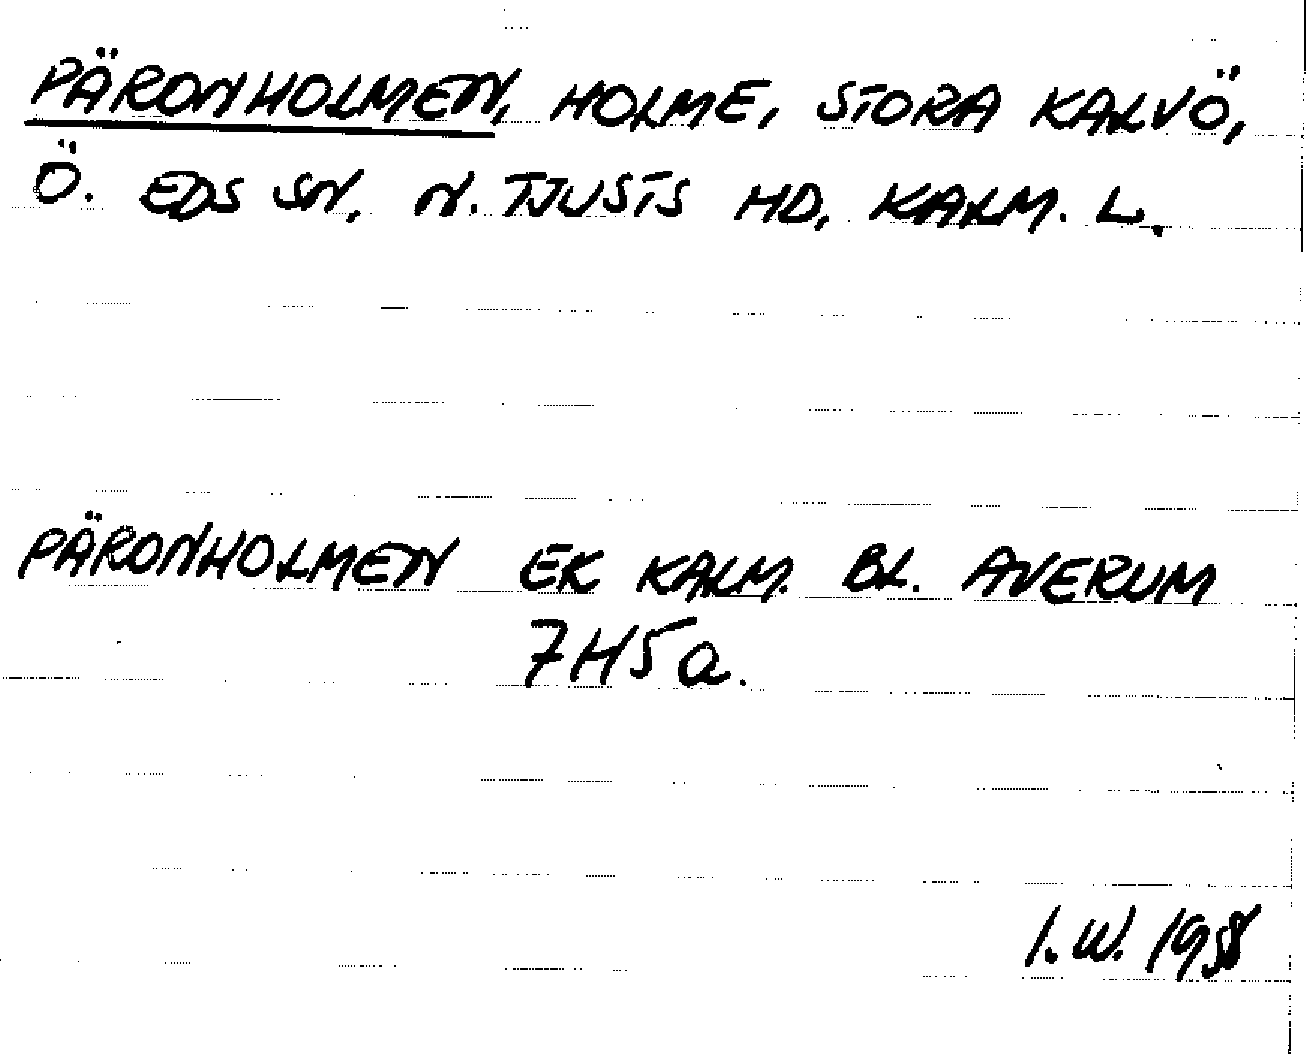 PÄRONHOLMEN, HOLME, STORA KALVÖ,
Ö. EDS SN, N. TJUSTS HD, KALM. L.
PÄRONHOLMEN EK KALM. BL. AVERUM
7H5a.
I.W.